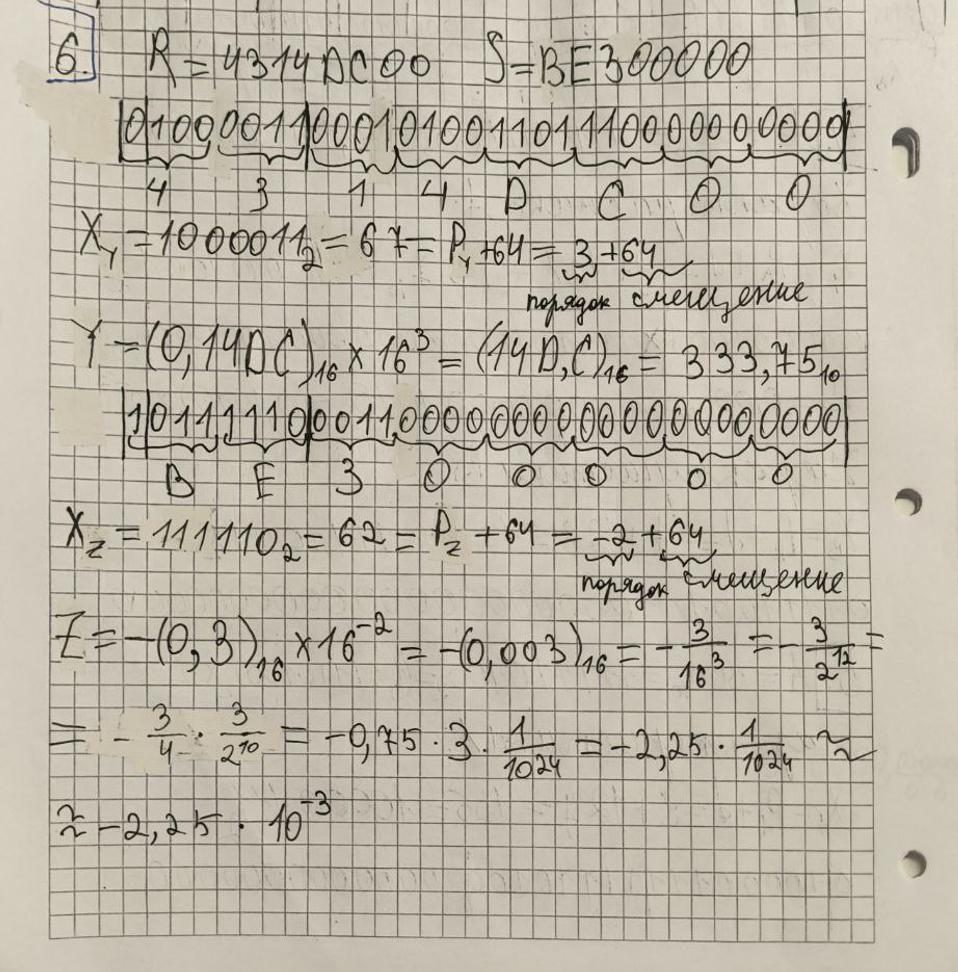 6. R = 4314DC00 S = BE300000
0100 0011 0001 0100 1101 1100 0000 0000
4 3 1 4 D C 0 0
X_Y = 1000011₂ = 67 = P_Y + 64 = 3 + 64
порядок смещение
Y = (0,14DC)₁₆ × 16³ = (14D,C)₁₆ = 333,75₁₀
1 011 1110 0011 0000 0000 0000 0000 0000
B E 3 0 0 0 0 0
X_Z = 111110₂ = 62 = P_Z + 64 = -2 + 64
порядок смещение
Z = -(0,3)₁₆ × 16⁻² = -(0,003)₁₆ = - 3/16³ = - 3/2¹² =
= - 3/4 · 3/2¹⁰ = -0,75 · 3 · 1/1024 = -2,25 · 1/1024 ≈
≈ -2,25 · 10⁻³